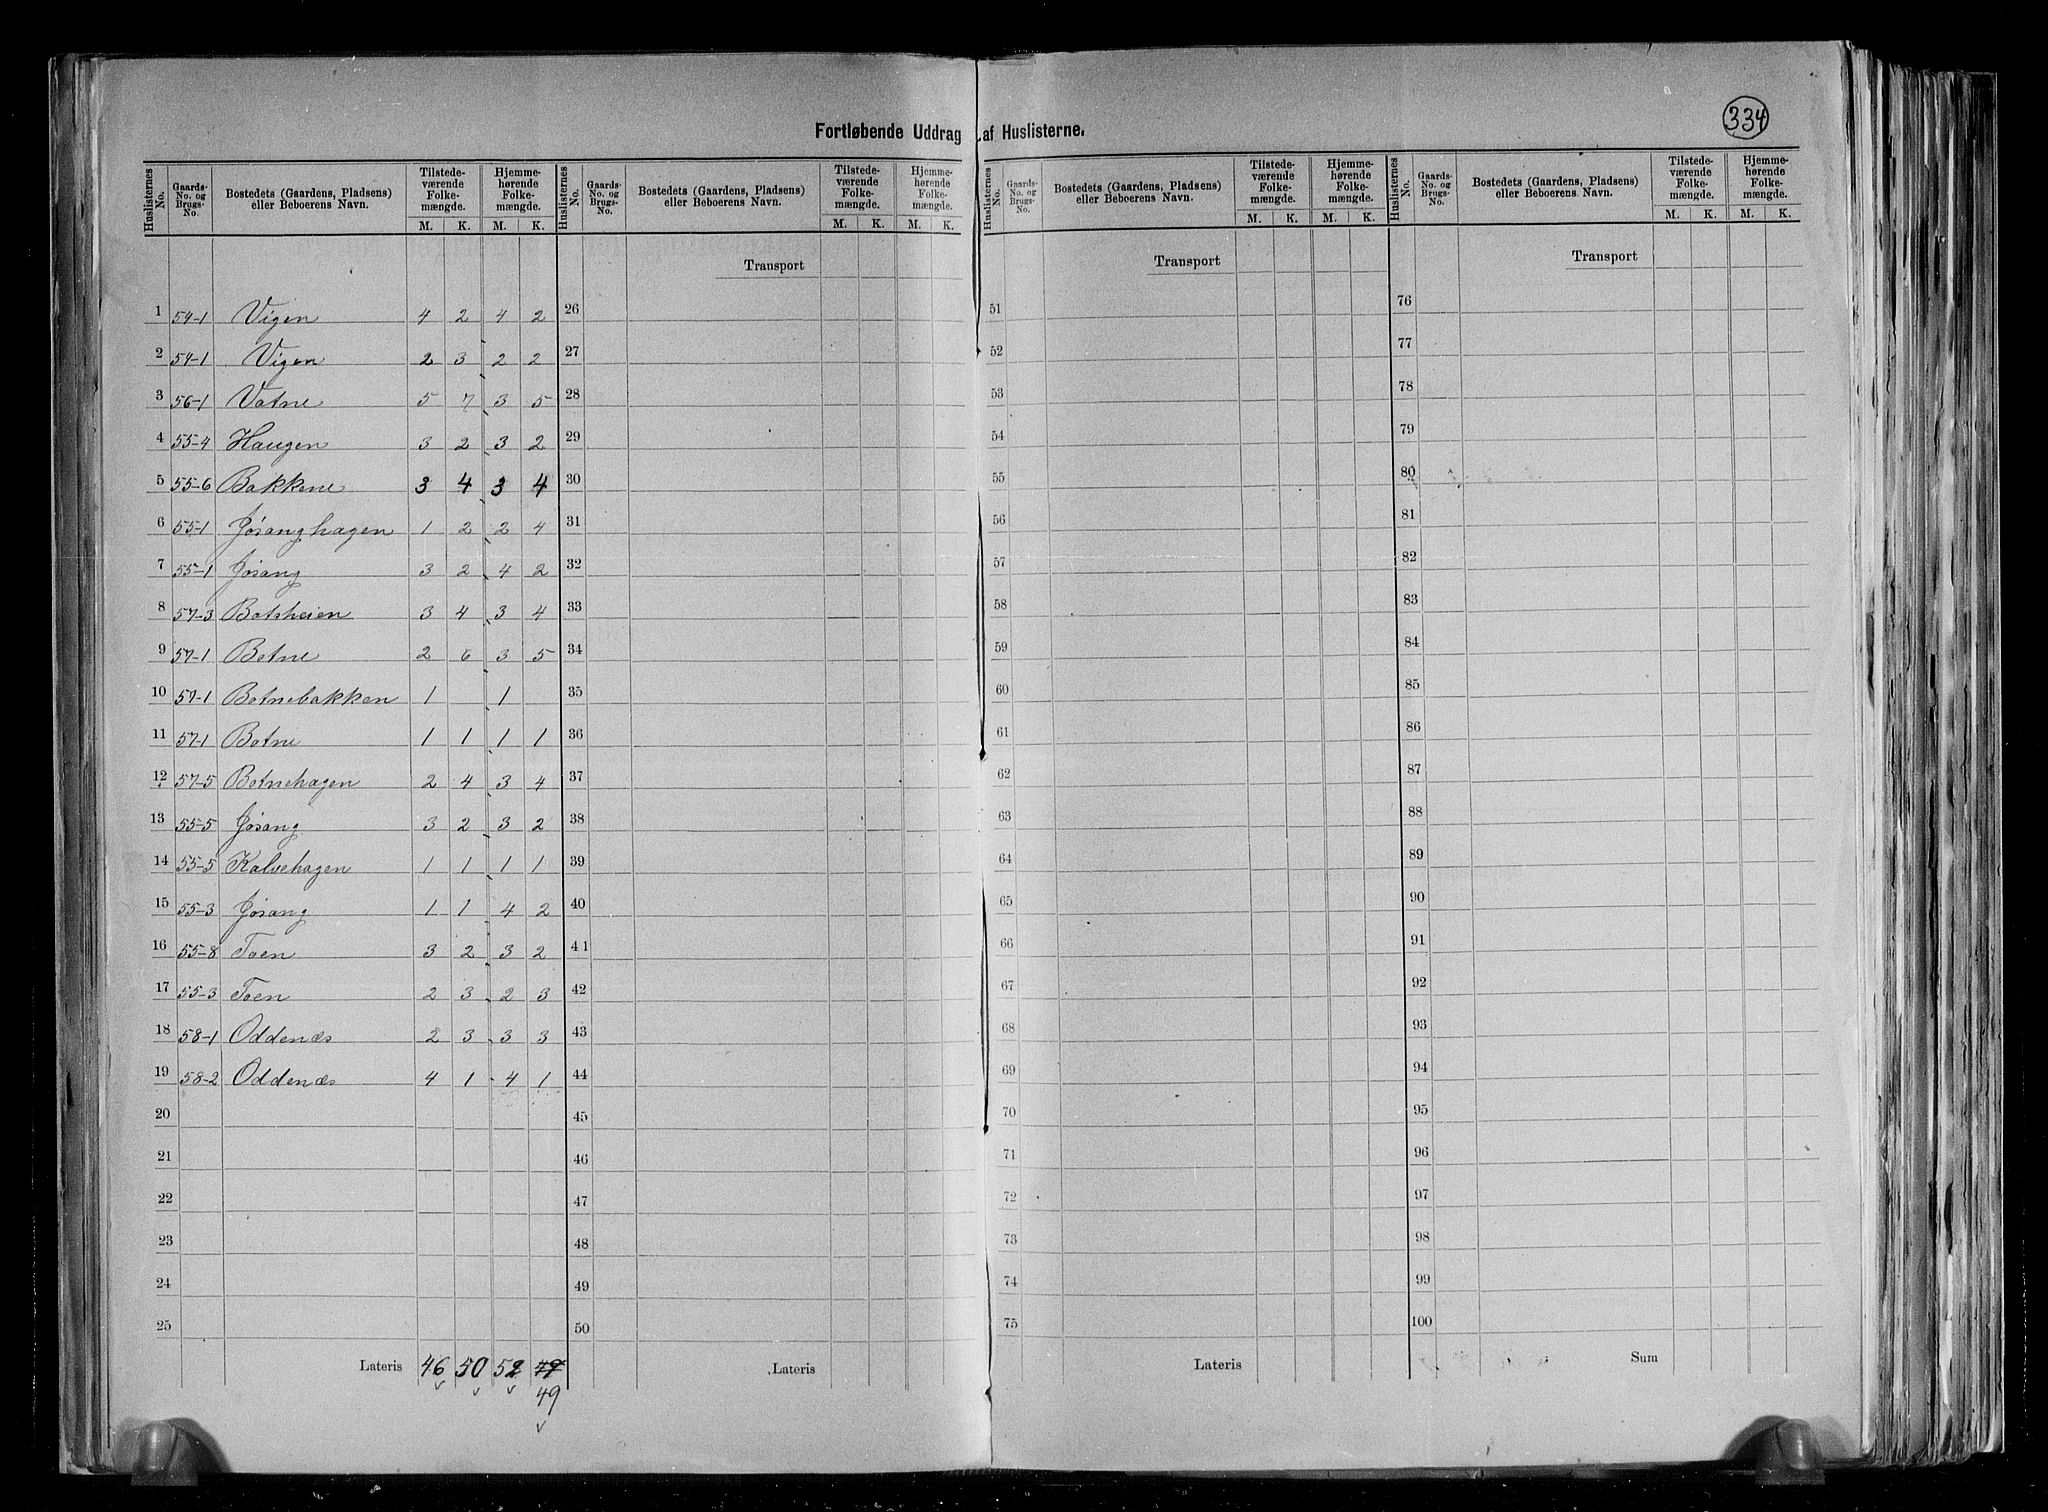 334
Fortløbende Uddrag af Huslisterne.
Huslisternes No. Gaards-No. og Brugs-No. Bostedets (Gaardens, Pladsens) eller Beboerens Navn. Tilstedeværende Folkemængde. M. K. Hjemmehørende Folkemængde. M. K.
Huslisternes No. Gaards-No. og Brugs-No. Bostedets (Gaardens, Pladsens) eller Beboerens Navn. Tilstedeværende Folkemængde. M. K. Hjemmehørende Folkemængde. M. K.
Huslisternes No. Gaards-No. og Brugs-No. Bostedets (Gaardens, Pladsens) eller Beboerens Navn. Tilstedeværende Folkemængde. M. K. Hjemmehørende Folkemængde. M. K.
Huslisternes No. Gaards-No. og Brugs-No. Bostedets (Gaardens, Pladsens) eller Beboerens Navn. Tilstedeværende Folkemængde. M. K. Hjemmehørende Folkemængde. M. K.
Transport Transport Transport
1 54-1 Vigen 4 2 4 2 26 51 76
2 54-1 Vigen 2 3 2 2 27 52 77
3 56-1 Vatne 5 7 3 5 28 53 78
4 55-4 Haugen 3 2 3 2 29 54 79
5 55-6 Bakkene 3 4 3 4 30 55 80
6 55-1 Jøsanghagen 1 2 2 4 31 56 81
7 55-1 Jøsang 3 2 4 2 32 57 82
8 57-3 Botsheien 3 4 3 4 33 58 83
9 57-1 Botne 2 6 3 5 34 59 84
10 57-1 Botnebakken 1 1 35 60 85
11 57-1 Botne 1 1 1 1 36 61 86
12 57-5 Botnehagen 2 4 3 4 37 62 87
13 55-5 Jøsang 3 2 3 2 38 63 88
14 55-5 Kalvehagen 1 1 1 1 39 64 89
15 55-3 Jøsang 1 1 4 2 40 65 90
16 55-8 Toen 3 2 3 2 41 66 91
17 55-3 Toen 2 3 2 3 42 67 92
18 58-1 Oddenæs 2 3 3 3 43 68 93
19 58-2 Oddenæs 4 1 4 1 44 69 94
20 45 70 95
21 46 71 96
22 47 72 97
23 48 73 98
24 49 74 99
25 50 75 100
Lateris 46 50 52 Lateris Lateris Sum
49